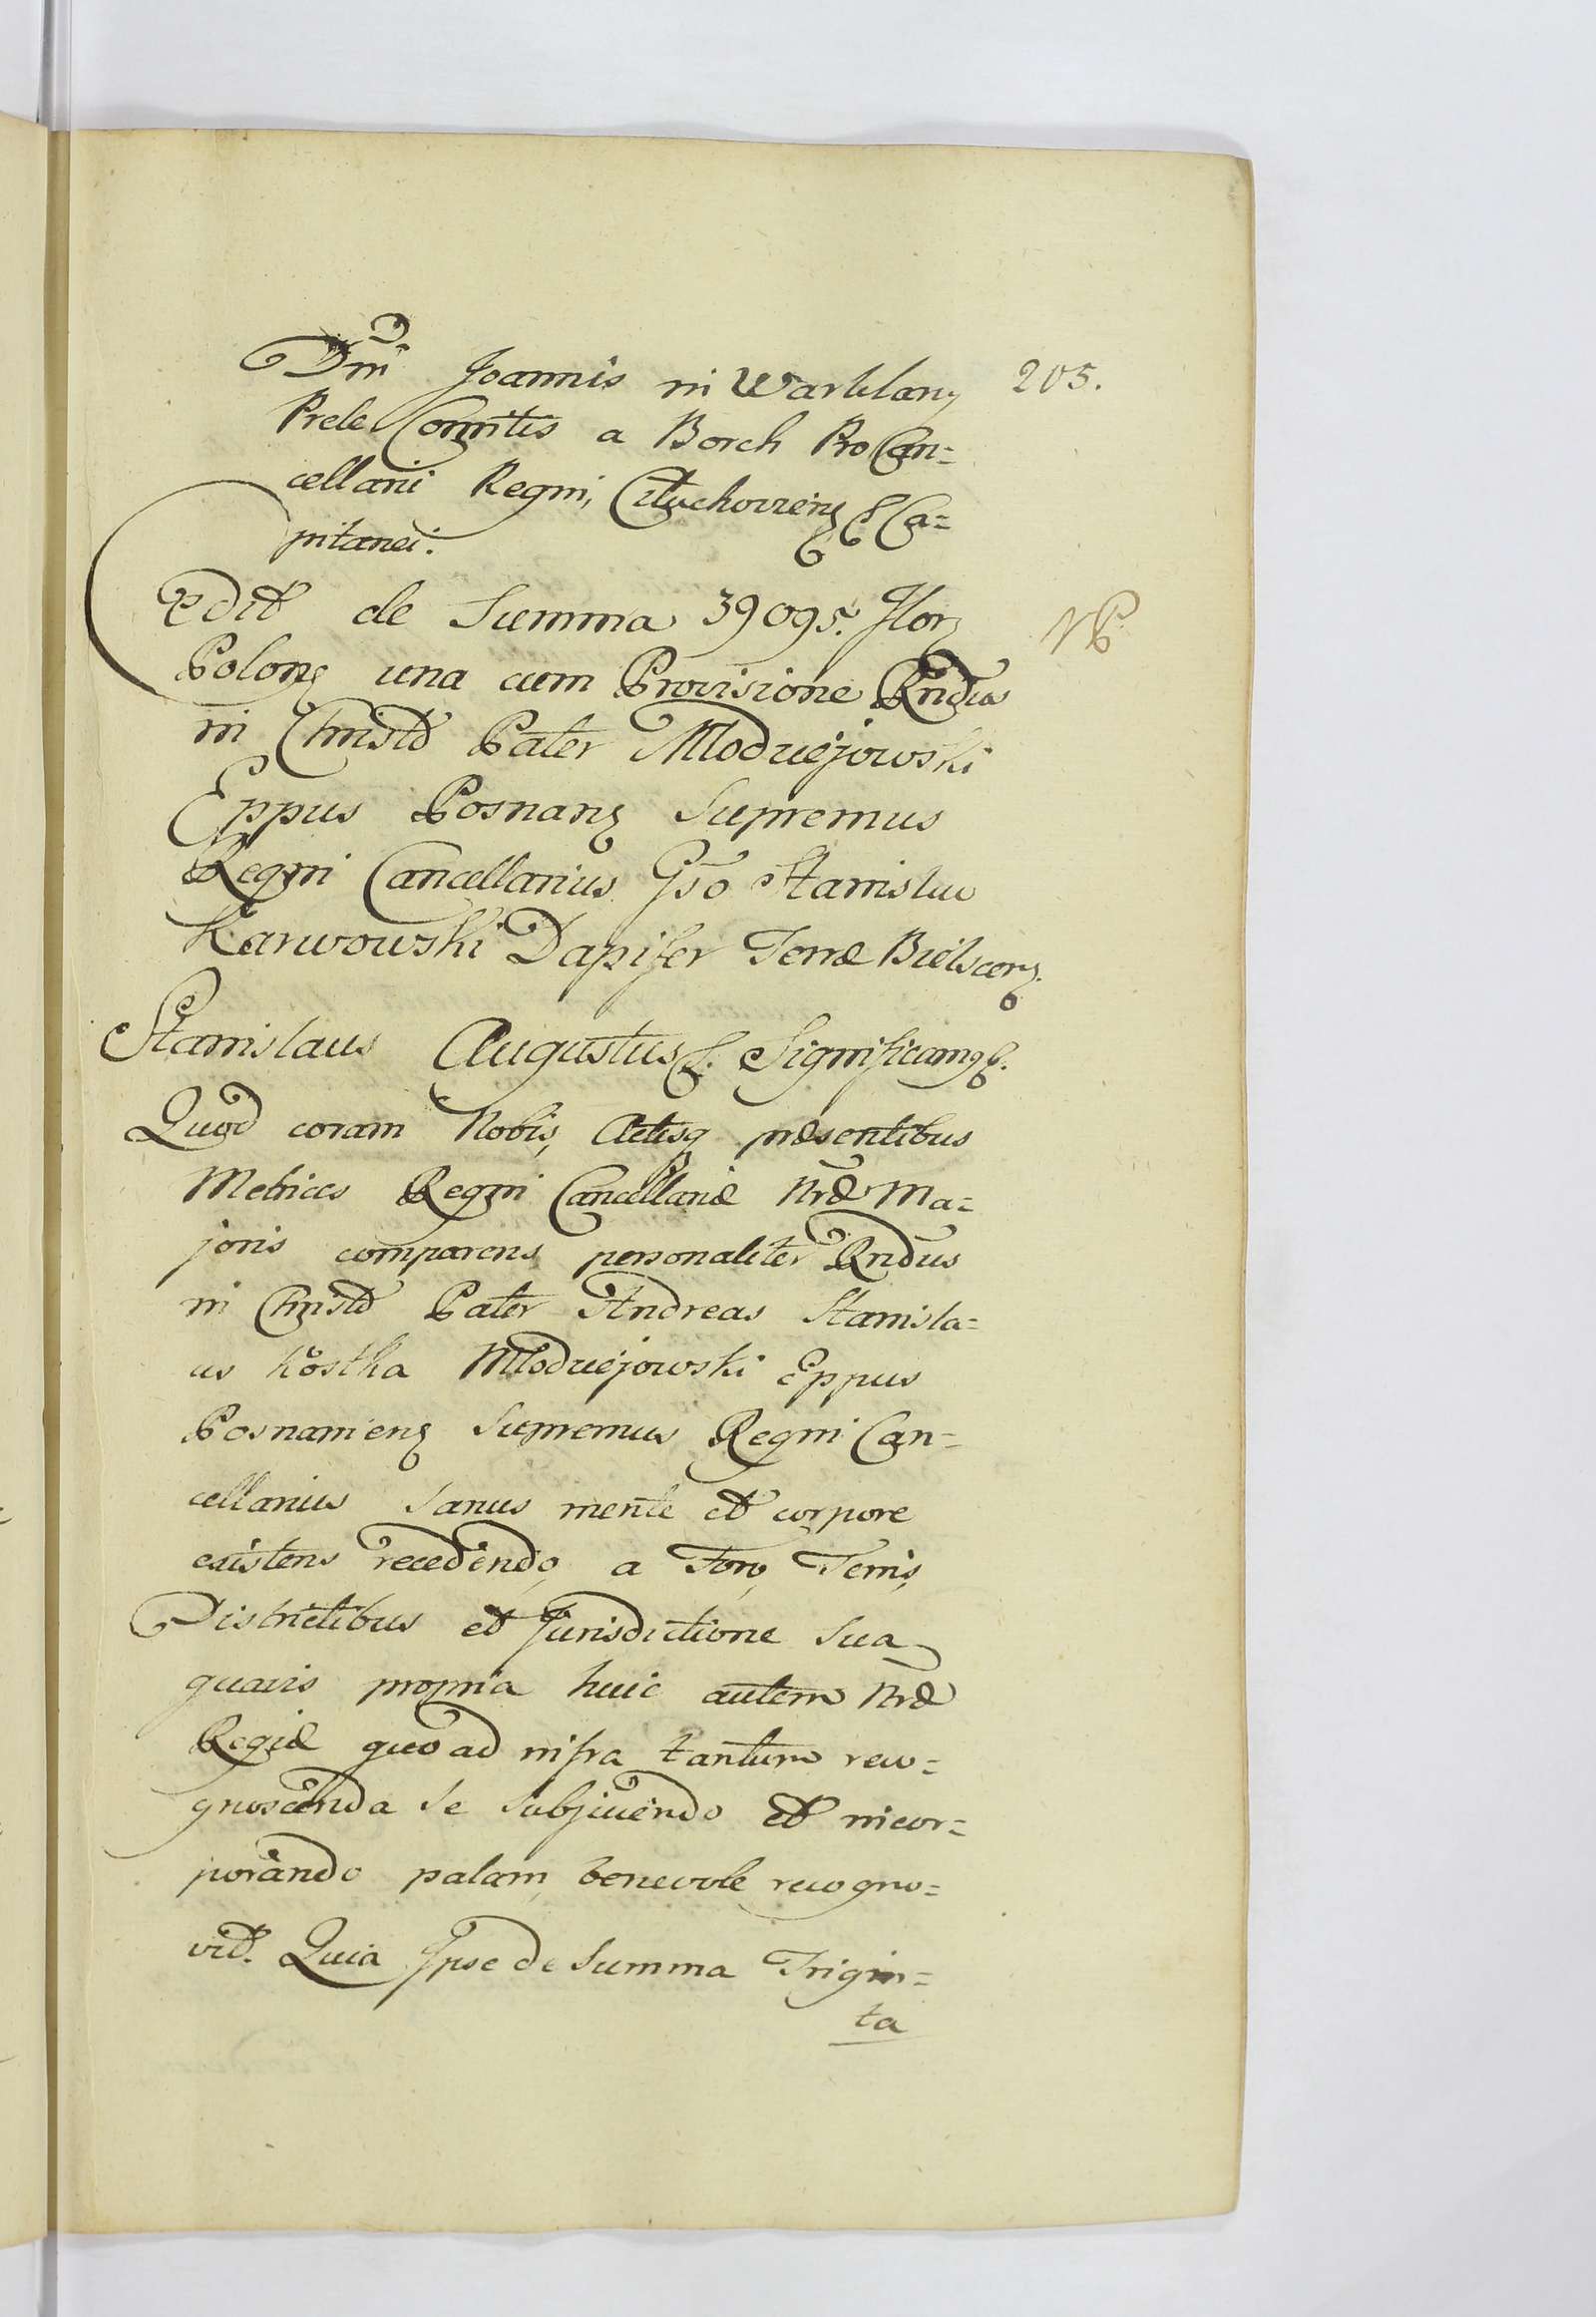 Dni Joannis in Warklany 205.
Prele Comitis a Borch ProCan=
cellarii Regni, &Ca=
pitanei.
de Summa 39095. Flor
Polon una cum Provisione Rndus
in Christo Pater Młodziejowski
Eppus Posnan Supremus
Regni Cancellarius Gso Stanislao
Karwowski Dapifer Terræ Bielscen.
Stanislaus Augustus &. Significamq &.
Quod coram Nobis, Actisq præsentibus
Metrices Regni Cancellariæ Nræ Ma=
joris comparens personaliter Rndus
in Christo Pater Andreas Stanisla=
us Kostka Młodziejowski Eppus
Posnaniens Supremus Regni Can=
cellarius sanus mente et corpore
existens recedendo, a Foro, Terris,
Districtibus et Jurisdictione sua
quavis propria huic autem Nræ
Regiæ quo ad infra tantum reco=
gnoscenda se subjiciendo et incor=
porando palam, benevole recogno=
vit. Quia Ipse de Summa Trigin=
ta